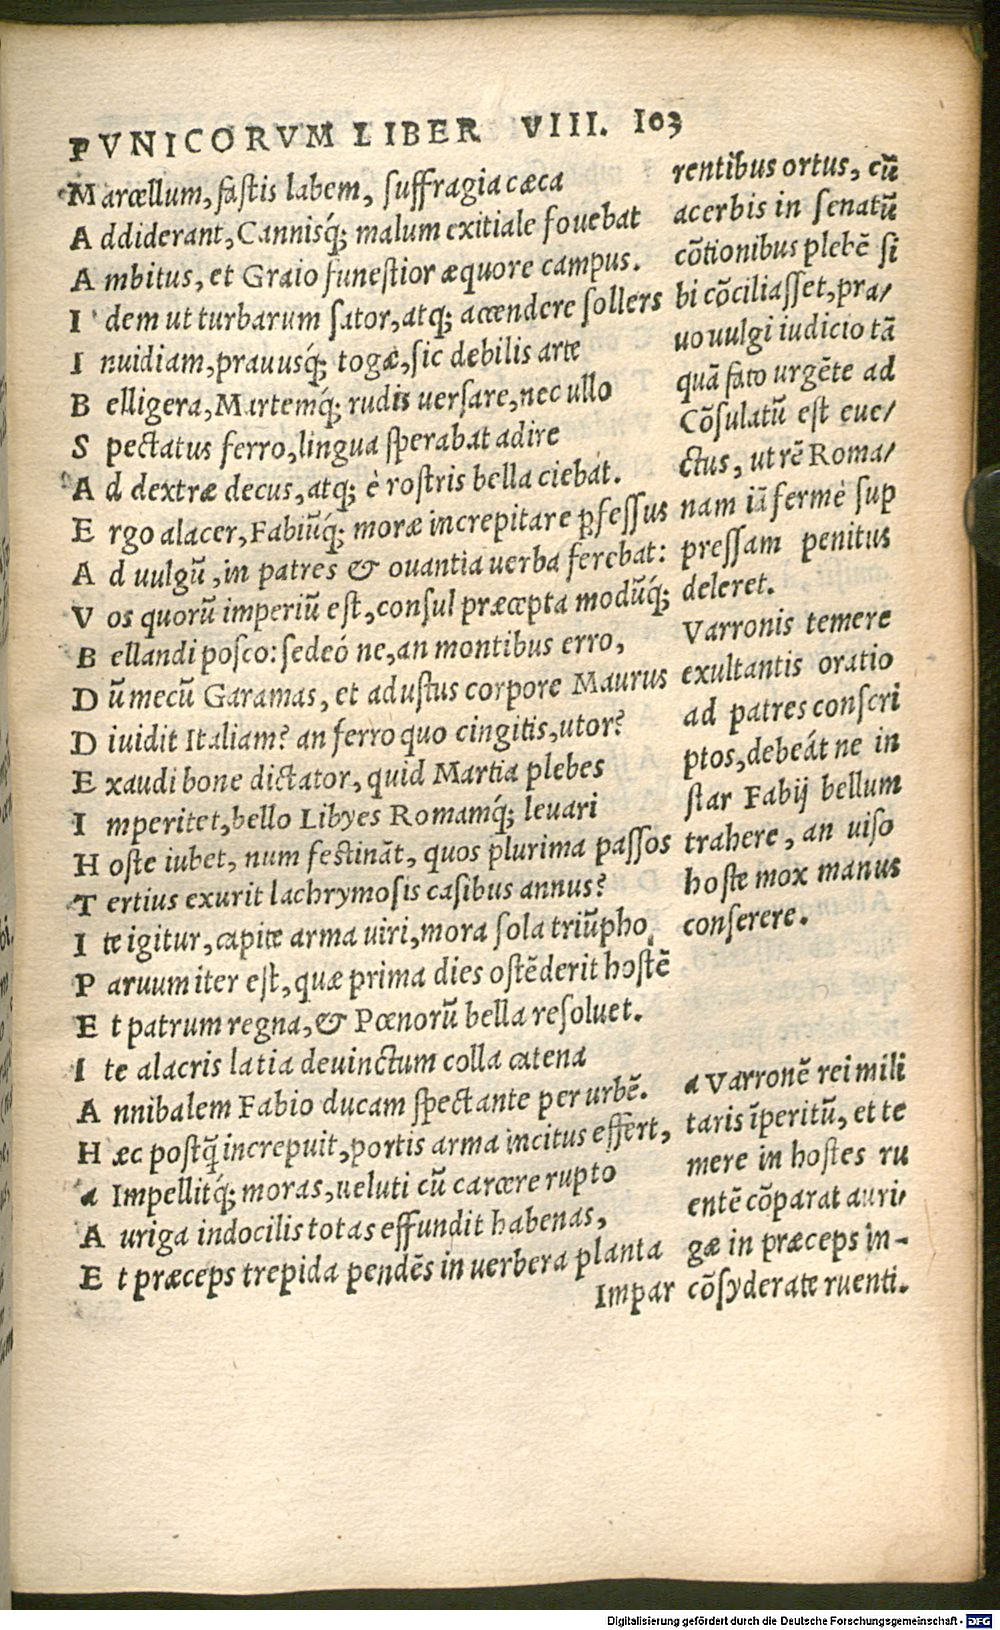 PVNICORVM LIBER VIII. 103
Marcellum, fastis labem, suffragia cæca
Addiderant, Cannisq́; malum exitiale fouebat
Ambitus, et Graio funestior æquore campus.
Idem ut turbarum sator, atq; accendere sollers
Inuidiam, prauusq́; togæ, sic debilis arte
Belligera, Martemq́; rudis uersare, nec ullo
Spectatus ferro, lingua sperabat adire
Ad dextræ decus, atq; è rostris bella ciebat.
Ergo alacer, Fabiũq́; moræ increpitare ꝓfessus
Ad uulgũ, in patres & ouantia uerba ferebat:
Vos quorũ imperiũ est, consul præcepta modũq́;
Bellandi posco: sedeó ne, an montibus erro,
Dũ mecũ Garamas, et adustus corpore Maurus
Diuidit Italiam? an ferro quo cingitis, utor?
Exaudi bone dictator, quid Martia plebes
Imperitet, bello Libyes Romamq́; leuari
Hoste iubet, num festinãt, quos plurima passos
Tertius exurit lachrymosis casibus annus?
Ite igitur, capite arma uiri, mora sola triũpho,
Paruum iter est, quæ prima dies ostẽderit hostẽ
Et patrum regna, & Pœnorũ bella resoluet.
Ite alacris latia deuinctum colla catena
Annibalem Fabio ducam spectante per urbẽ.
Hæc postq̃ increpuit, portis arma incitus effert,
a Impellitq́; moras, ueluti cũ carcere rupto
Auriga indocilis totas effundit habenas,
Et præceps trepida pendẽs in uerbera planta
Impar
rentibus ortus, cũ
acerbis in senatũ
cõtionibus plebẽ si
bi cõciliasset, pra/
uo uulgi iudicio tã
quã fato urgẽte ad
Cõsulatũ est eue/
ctus, ut rẽ Roma/
nam iã fermè sup
pressam penitus
deleret.
Varronis temere
exultantis oratio
ad patres conscri
ptos, debeát ne in
star Fabij bellum
trahere, an uiso
hoste mox manus
conserere.
a Varronẽ rei mili
taris ĩperitũ, et te
mere in hostes ru
entẽ cõparat auri/
gæ in præceps in-
cõsyderate ruenti.
Digitalisierung gefördert durch die Deutsche Forschungsgemeinschaft - DFG